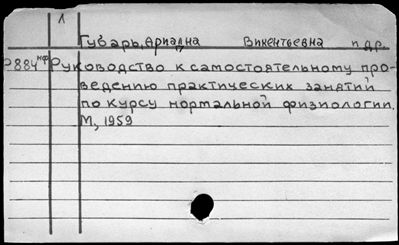 1
Губарь, Ариадна Викентьевна и др.
Р884нф Руководство к самостоятельному про-
ведению практических занятий
по курсу нормальной физиологии.
М, 1959